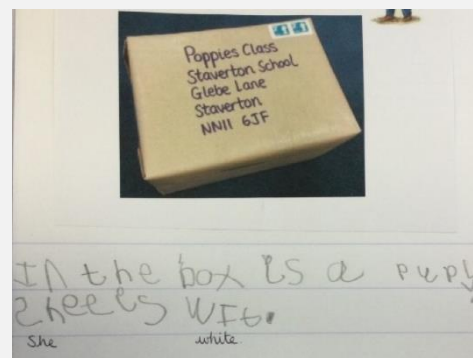 Poppies Class
Staverton School
Glebe Lane
Staverton
NN11 6JF
In the box is a pupy
Sheeis Wit.
She white.